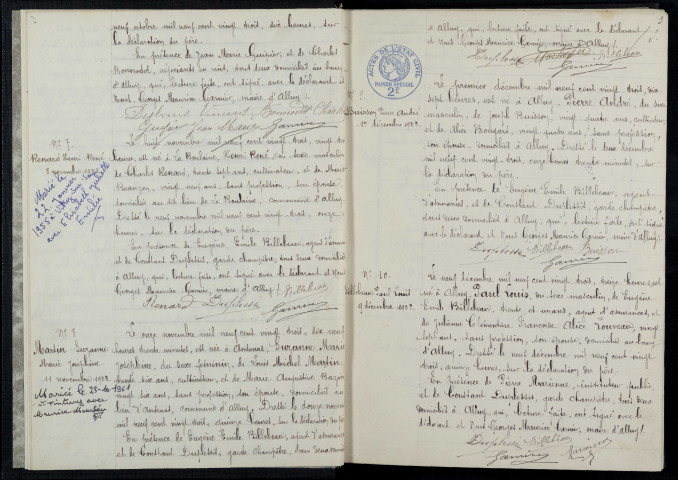 neuf octobre mil neuf cent vingt trois, dix heures, sur
la déclaration du père.
En présence de Jean Marie Guyrier, et de Charles
domiciliés au bourg
d'Alluy, qui, lecture faite, ont signé avec le déclarant et
Nous, Georges Maurice Garnier, maire d'Alluy.
Garnier
N° 7.
Renard Henri René
8 novembre 1923
Marié le
22 Janvier
1955 à
avec Elisabeth Juliette
Emilie
Le huit novembre mil neuf cent vingt trois, vingt
heures, est né à La Boulaine, Henri René, du sexe masculin
de Charles Renard, trente sept ans, cultivateur, et de Marie
vingt neuf ans, sans profession, son épouse
domiciliés au dit lieu de La Boulaine, commune d'Alluy.
Dressé le neuf novembre mil neuf cent vingt trois, onze
heures, sur la déclaration du père.
En présence de Eugène Emile Billebeau, agent d'assurances
et de Constant Duplessis, garde champêtre, tous deux domiciliés
à Alluy, qui, lecture faite, ont signé avec le déclarant et Nous
Georges Maurice Garnier, maire d'Alluy. Billebeau
Renard Duplessis Garnier
Martin Suzanne
Marie Joséphine
11 novembre 1923.
Mariée le 28-10-1961
avec
Maurice
Le onze novembre mil neuf cent vingt trois, dix neuf
heures trente minutes, est née à Suzanne Marie
Joséphine, du sexe féminin, de Louis Michel Martin
trente six ans, cultivateur, et de Marie Augustine
vingt six ans, sans profession, son épouse, domiciliés au
lieu commune d'Alluy. Dressé le douze novembre
mil neuf cent vingt trois, quinze heures, sur la déclaration du père
En présence de Eugène Emile Billebeau, agent d'assurances
et de Constant Duplessis, garde champêtre, tous deux domiciliés
à Alluy, qui, lecture faite, ont signé avec le déclarant
et Nous Georges Maurice Garnier, maire d'Alluy.
Duplessis Martin Billebeau
Garnier
ACTES DE L'ETAT CIVIL
PAPIER SPÉCIAL
2F
Buisson Pierre André
1er décembre 1923
Le premier décembre mil neuf cent vingt trois, dix
sept heures, est né à Alluy, Pierre André, du sexe
masculin, de Joseph Buisson, vingt quatre ans, cultivateur
et de Alice vingt quatre ans, sans profession,
son épouse, domiciliés à Alluy. Dressé le deux décembre
mil neuf cent vingt trois, onze heures trente minutes, sur
la déclaration du père.
En présence de Eugène Emile Billebeau, agent
d'assurances, et de Constant Duplessis, garde champêtre,
tous deux domiciliés à Alluy, qui, lecture faite, ont signé
avec le déclarant et Nous Georges Maurice Garnier, maire d'Alluy.
Duplessis Billebeau Buisson
Garnier
N° 10.
Billebeau Paul Louis
9 décembre 1923.
Le neuf décembre mil neuf cent vingt trois, treize heures, est
né à Alluy, Paul Louis, du sexe masculin, de Eugène
Emile Billebeau, trente et un ans, agent d'assurances, et
de Julienne Clémentine Françoise Alice vingt
sept ans, sans profession, son épouse, domiciliés au bourg
d'Alluy. Dressé le neuf décembre mil neuf cent vingt
trois, quinze heures, sur la déclaration du père.
En présence de Pierre instituteur public
et de Constant Duplessis, garde champêtre, tous deux
domiciliés à Alluy, qui, lecture faite, ont signé avec le
déclarant et Nous Georges Maurice Garnier, maire d'Alluy.
Duplessis Billebeau
Garnier